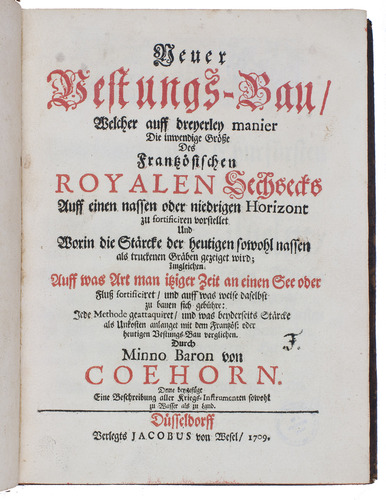 Neuer
Vestungs-Bau/
Welcher auff dreyerley manier
Die inwendige Größe
Des
Frantzösischen
ROYALEN Sechsecks
Auff einen nassen oder niedrigen Horizont
zu fortificiren vorstellet
Und
Worin die Stärcke der heutigen sowohl nassen
als truckenen Gräben gezeiget wird;
Imgleichen
Auff was Art man itziger Zeit an einen See oder
Fluß fortificiret/ und auff was weise daselbst
zu bauen sich gebühre:
Jede Methode geattaquiret/ und was beyderseits Stärcke
als Unkosten anlanget mit dem Frantzös. oder
heutigen Vestungs-Bau verglichen.
Durch
Minno Baron von
COEHORN.
Deme beygefügt
Eine Beschreibung aller Kriegs-Instrumenten sowohl
zu Wasser als zu Land.
Düsseldorff
Verlegts JACOBUS von Wesel/ 1709.